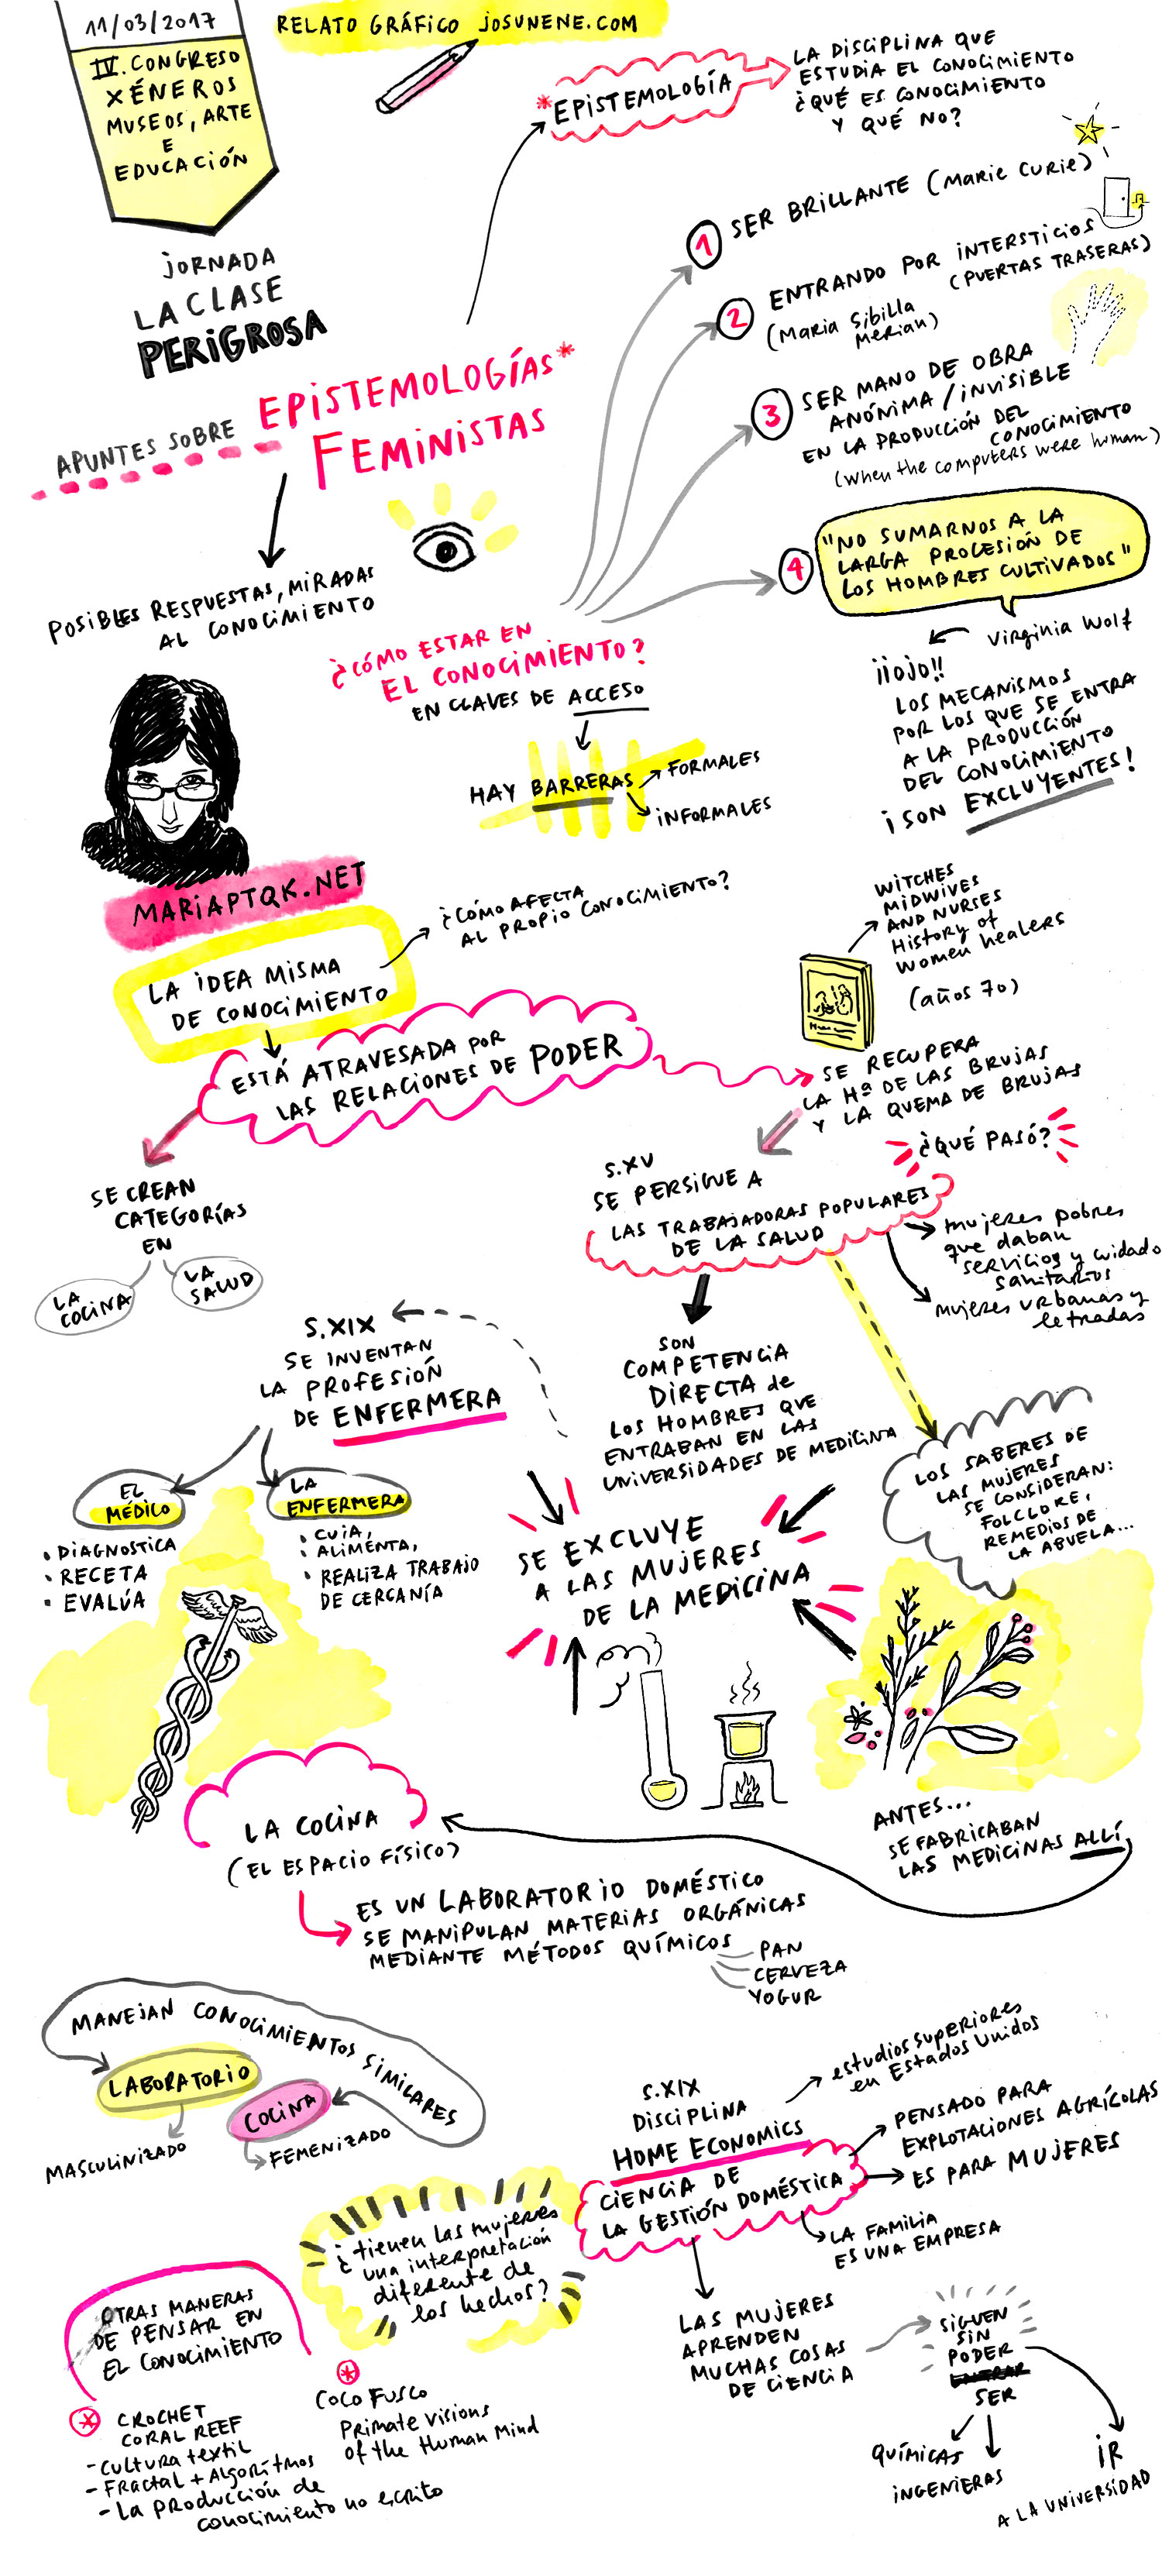 11/03/2017
IV. CONGRESO
XÉNEROS
MUSEOS, ARTE
E
EDUCACIÓN
RELATO GRÁFICO JOSUNENE.COM
*EPISTEMOLOGÍA
LA DISCIPLINA QUE
ESTUDIA EL CONOCIMIENTO
¿QUÉ ES CONOCIMIENTO
Y QUÉ NO?
JORNADA
LA CLASE
PERIGROSA
APUNTES SOBRE
EPISTEMOLOGÍAS*
FEMINISTAS
POSIBLES RESPUESTAS, MIRADAS
AL CONOCIMIENTO
1 SER BRILLANTE (MARIE CURIE)
2 ENTRANDO POR INTERSTICIOS
(PUERTAS TRASERAS)
(MARIA SIBILLA
MERIAN)
3 SER MANO DE OBRA
ANÓNIMA / INVISIBLE
EN LA PRODUCCIÓN DEL
CONOCIMIENTO
(when the computers were human)
4 "NO SUMARNOS A LA
LARGA PROCESIÓN DE
LOS HOMBRES CULTIVADOS"
Virginia Wolf
¡¡OJO!!
LOS MECANISMOS
POR LOS QUE SE ENTRA
A LA PRODUCCIÓN
DEL CONOCIMIENTO
¡SON EXCLUYENTES!
¿CÓMO ESTAR EN
EL CONOCIMIENTO?
EN CLAVES DE ACCESO
HAY BARRERAS
FORMALES
INFORMALES
MARIAPTQK.NET
LA IDEA MISMA
DE CONOCIMIENTO
¿CÓMO AFECTA
AL PROPIO CONOCIMIENTO?
ESTÁ ATRAVESADA POR
LAS RELACIONES DE PODER
WITCHES
MIDWIVES
AND NURSES
HISTORY OF
WOMEN HEALERS
(años 70)
SE RECUPERA
LA Hª DE LAS BRUJAS
Y LA QUEMA DE BRUJAS
¿QUÉ PASÓ?
S.XV
SE PERSIGUE A
LAS TRABAJADORAS POPULARES
DE LA SALUD
mujeres pobres
que daban
servicios y cuidado
sanitarios
mujeres urbanas y
letradas
SE CREAN
CATEGORÍAS
EN
LA
COCINA
LA
SALUD
S.XIX
SE INVENTAN
LA PROFESIÓN
DE ENFERMERA
EL
MÉDICO
• DIAGNOSTICA
• RECETA
• EVALÚA
LA
ENFERMERA
• CUIA,
• ALIMENTA,
• REALIZA TRABAJO
DE CERCANÍA
SON
COMPETENCIA
DIRECTA de
LOS HOMBRES QUE
ENTRABAN EN LAS
UNIVERSIDADES DE MEDICINA
SE EXCLUYE
A LAS MUJERES
DE LA MEDICINA
LOS SABERES DE
LAS MUJERES
SE CONSIDERAN:
FOLCLORE,
REMEDIOS DE
LA ABUELA...
ANTES...
SE FABRICABAN
LAS MEDICINAS ALLÍ
LA COCINA
(EL ESPACIO FÍSICO)
ES UN LABORATORIO DOMÉSTICO
SE MANIPULAN MATERIAS ORGÁNICAS
MEDIANTE MÉTODOS QUÍMICOS
PAN
CERVEZA
YOGUR
MANEJAN CONOCIMIENTOS SIMILARES
LABORATORIO
COCINA
MASCULINIZADO
FEMENIZADO
S.XIX
DISCIPLINA
HOME ECONOMICS
CIENCIA DE
LA GESTIÓN DOMÉSTICA
estudios superiores
en Estados Unidos
PENSADO PARA
EXPLOTACIONES AGRÍCOLAS
ES PARA MUJERES
LA FAMILIA
ES UNA EMPRESA
LAS MUJERES
APRENDEN
MUCHAS COSAS
DE CIENCIA
SIGUEN
SIN
PODER
SER
QUÍMICAS
INGENIERAS
IR
A LA UNIVERSIDAD
¿tienen las mujeres
una interpretación
diferente de
los hechos?
OTRAS MANERAS
DE PENSAR EN
EL CONOCIMIENTO
* CROCHET
CORAL REEF
- Cultura textil
- Fractal + Algorítmos
- La producción de
conocimiento no escrito
* COCO FUSCO
Primate visions
of the Human Mind